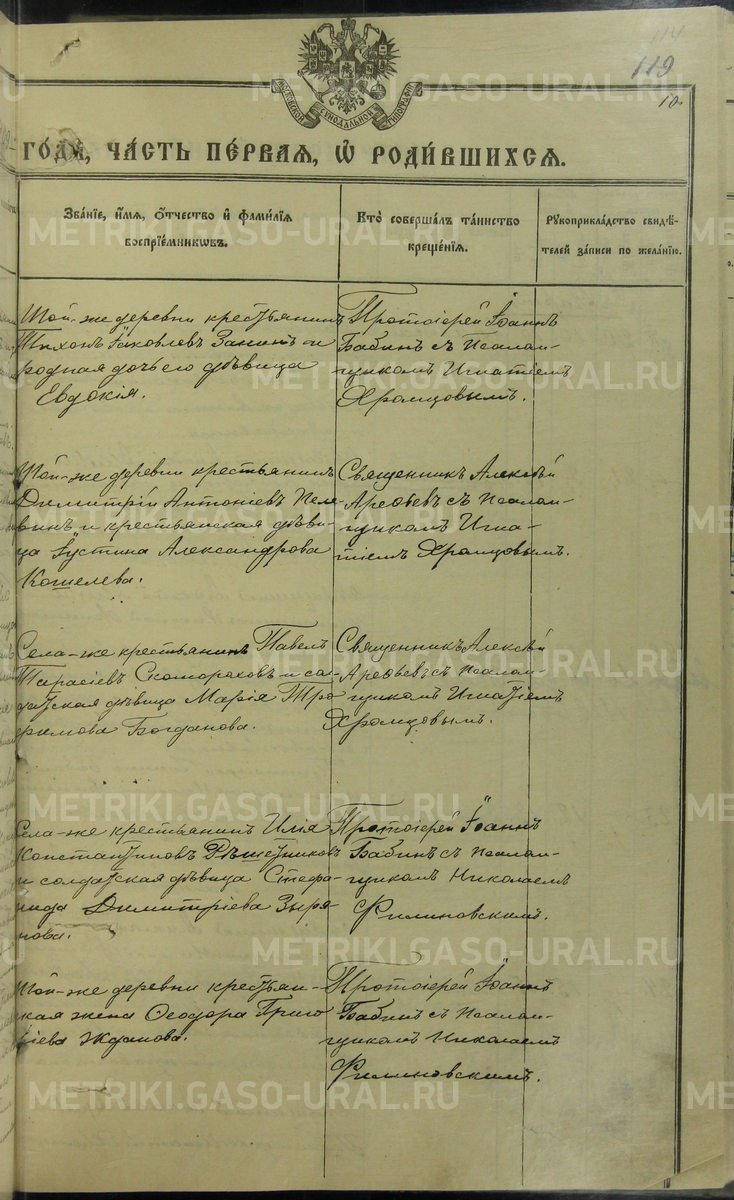 114
119
10.
МОСКОВСКОЙ СѴНОДАЛЬНОЙ ТИПОГРАФІИ
го́да, ча́сть пе́рвая, ѡ҆ роди́вшихся.
Зва́ніе, и҆́мя, ѻ҆́тчество и҆ фами́лія воспрїе́мникѡвъ.
Кто̀ соверша́лъ та́инство креще́нїя.
Рꙋкоприкла́дство свидѣ́телей за́писи по жела́нїю.
Той-же деревни крестьянинъ
Тихонъ Іаковлевъ Занинъ и
родная дочь его дѣвица
Евдокія.
Протоіерей Іоаннъ
Бабинъ съ Псалом-
щикомъ Игнатіемъ
Храмцовымъ.
Той-же деревни крестьянинъ
Димитрій Антоніевъ Пеле-
винъ и крестьянская дѣви-
ца Іустина Александрова
Кошелева.
Священникъ Алексѣй
Арефьевъ съ Псалом-
щикомъ Игна-
тіемъ Храмцовымъ.
Села-же крестьянинъ Павелъ
Тарасіевъ Скомороховъ и со-
датская дѣвица Марія Тро
фимова Богданова.
Священникъ Алексѣй
Арефьевъ съ Псалом-
щикомъ Игнатіемъ
Храмцовымъ.
Села-же крестьянинъ Илія
Константиновъ Рѣшетниковъ
и солдатская дѣвица Стефа-
нида Димитріева Зыря-
нова.
Протоіерей Іоаннъ
Бабинъ съ Псалом-
щикомъ Николаемъ
Филиновскимъ.
Той-же деревни крестьян-
ская жена Ѳеодора Григо
ріева Жданова.
Протоіерей Іоаннъ
Бабинъ съ Псалом-
щикомъ Николаемъ
Филиновскимъ.
METRIKI.GASO-URAL.RU